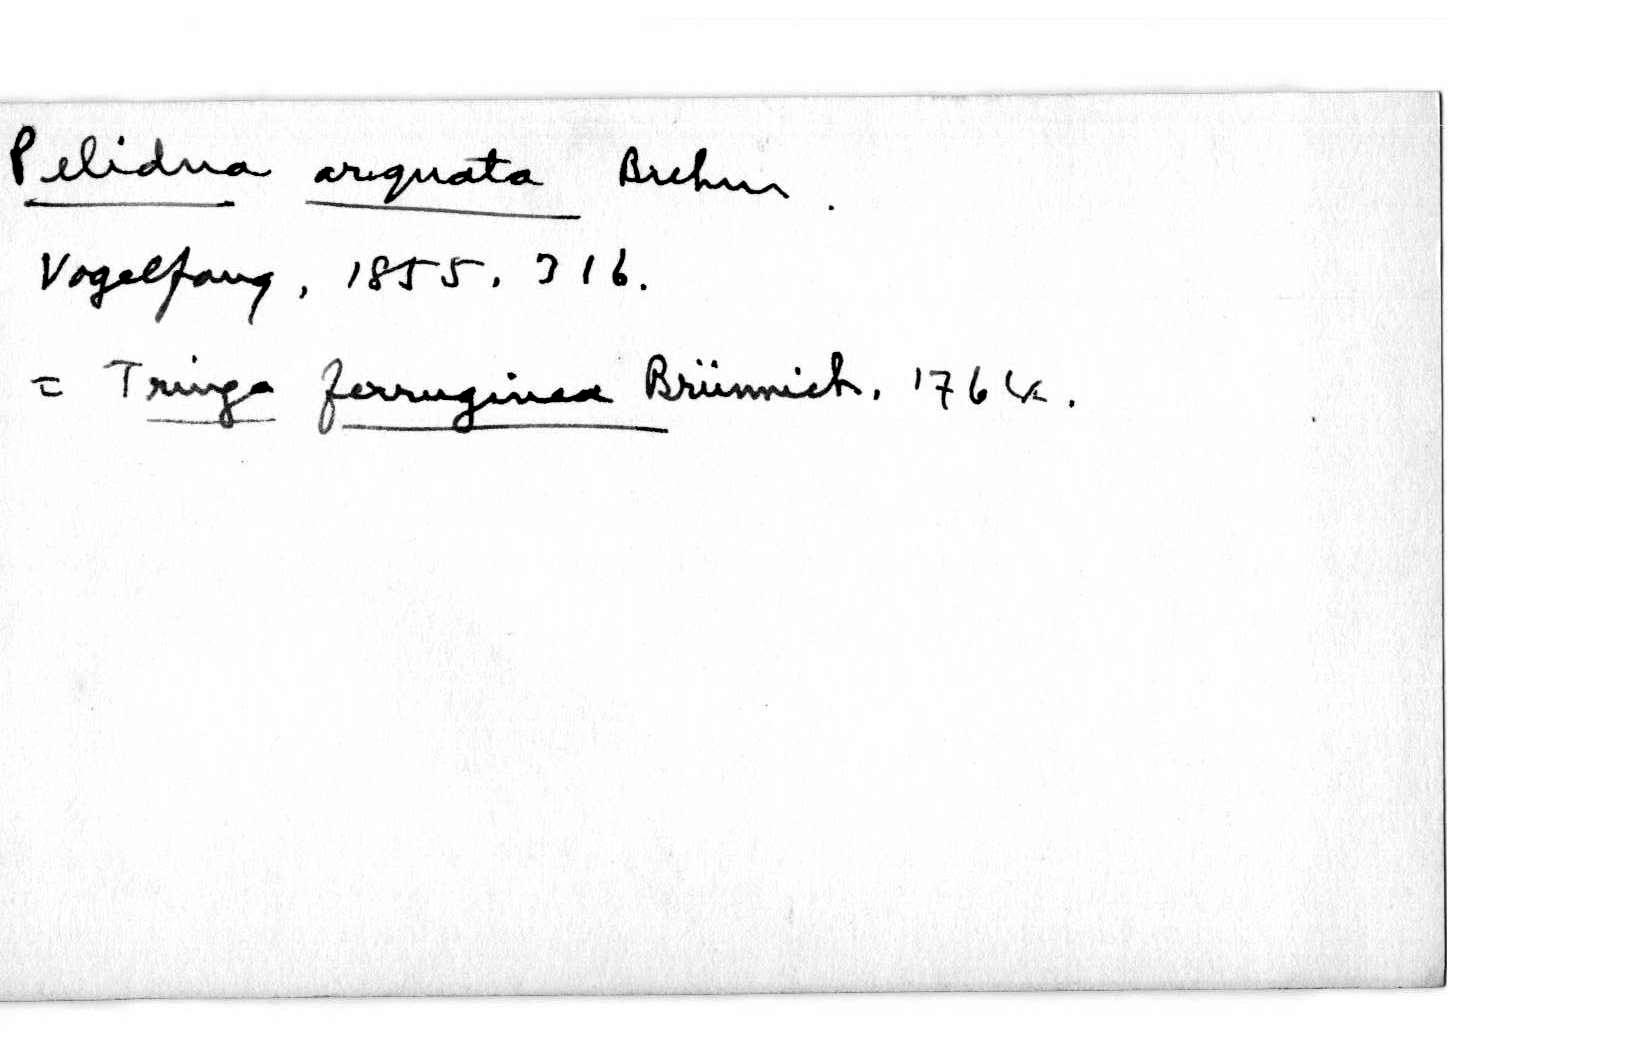 Pelidna arquata Brehm.
Vogelfang, 1855, 316.
= Tringa ferruginea Brünnich, 1764.